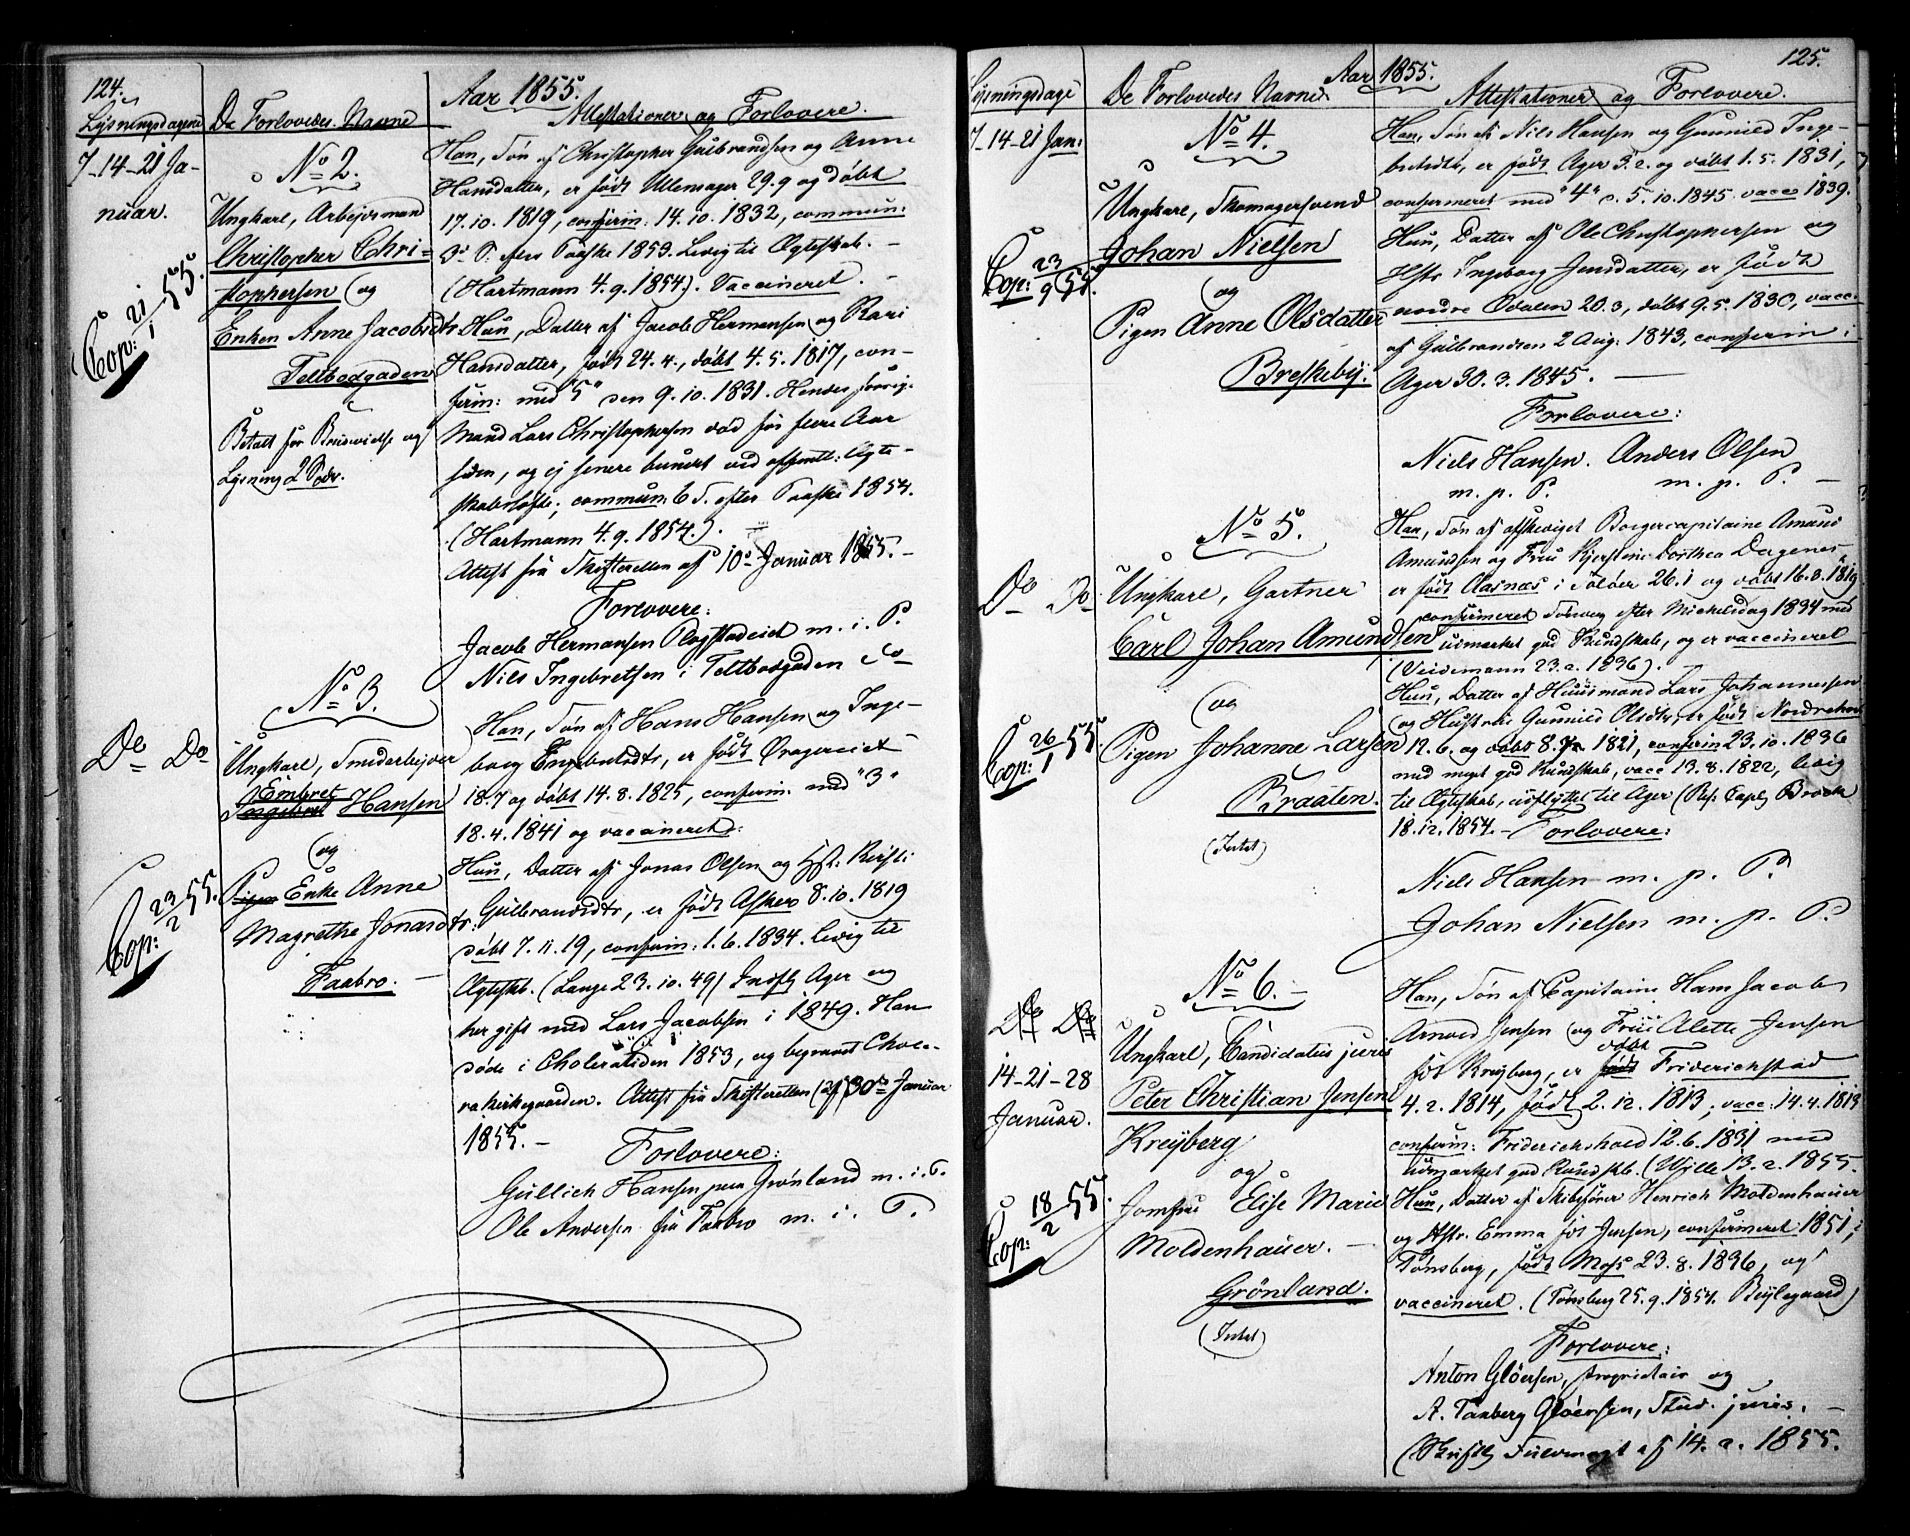 124.
Aar 1855.
Lysningsdagene
De Forlovedes Navne
Attestationer og Forlovere.
7-14-21 Ja-
nuar.
Cop: 21/1 55.
No 2.
Ungkarl, Arbejdsmand
Christopher Chri-
stophersen og
Enken Anne Jacobsdtr
Teltbodgaden
Betalt for Brudevielse og
Lysning 2 Spdr.
Han, Søn af Christopher Gulbrandsen og Anne
Hansdatter, er født Ullensager 29.9 og døbt
17.10. 1819, confirm. 14.10. 1832, commun:
3. S. efter Paaske 1853. Ledig til Ægteskab. -
(Hartmann 4.9.1854). Vaccineret. -
Hun, Datter af Jacob Hermansen og Kari
Hansdatter, født 24.4., døbt 4.5. 1817, con-
firm: med "5" den 9.10. 1831. Hendes forrige
Mand Lars Christophersen død for flere Aar
siden, og ej senere bundet ved offentl: Ægte-
skabsløfte; commun: 6 S. efter Paaske 1854.
(Hartmann 4.9.1854.).
Attest fra Skifteretten af 10de Januar 1855. -
Forlovere:
Jacob Hermansen Plogstadeiet m. i. P.
Nils Ingebretsen i Teltbodgaden do
Do Do
Cop: 23/2 55.
No 3.
Ungkarl, Smedarbejder
Embret
Ingebret Hansen
og
Pigen Enke Anne
Magrethe Jonasdtr.
Faabro. -
Han, Søn af Hans Hansen og Inge-
borg Engebretsdtr, er født Oragereiet
18.7 og døbt 14.8. 1825, confirm. med "3"
18.4. 1841 og vaccineret.
Hun, Datter af Jonas Olsen og Hst. Kirsti
Gulbrandsdtr, er født Asker 8.10. 1819
døbt 7.11.19, confirm: 1.6. 1834. Ledig til
Ægteskb. (Lange 23.10.49) Indfl. Ager og
her gift med Lars Jacobsen i 1849. Han
døde i Choleratiden 1853, og begravet Chole-
rakirkegaarden. Attest fra Skifteretten (af) 30te Januar
1855. -
Forlovere:
Gullich Hansen paa Grønland m. i. P.
Ole Andersen fra Faabro m. i. P.
125.
Aar 1855.
Lysningsdage
De Forlovedes Navne
Attestationer og Forlovere.
7-14-21 Jan:
Cop: 23/9 55.
No 4.
Ungkarl, Skomagersvend
Johan Nielsen
og
Pigen Anne Olsdatter
Breskeby.
Han, Søn af Nils Hansen og Gunild Inge-
bretsdtr, er født Ager 3.2. og døbt 1.5. 1831,
confirmeret med "4" d. 5.10.1845. vacc 1839.
Hun, Datter af Ole Christophersen og
Hstr Ingeborg Jensdatter, er født
nordre Odalen 20.3, døbt 9.5. 1830, vacc.
af Gulbrandsen 2 Aug: 1843, confirm: i
Ager 30.3. 1845. -
Forlovere:
Niels Hansen. Anders Olsen
m. p. P. m. p. P. -
Do Do
Cop: 26/1 55.
No 5.
Ungkarl, Gartner
Carl Johan Amundsen
og
Pigen Johanne Larsen
Braaten.
(Intet)
Han, Søn af afskediget Borgercapitaine Amund
Amundsen og Fru Kjerstine Dorthea Dagenes,
er født Aasnæs i Soløer 26.1 og døbt 16.8. 1819
confirmeret Solverg efter Michelsdag 1834 med
udmærket god Kundskab, og er vaccineret
(Veidemann 23.2.1836).
Hun, Datter af Huusmand Lars Johannesen
og Hustrue Gunild Olsdtr, er født Nordrehov
12.6. og døbt 8.7. 1821, confirm 23.10. 1836
med meget god Kundskab, vacc 13.8. 1822, ledig
til Ægteskab, udflyttet til Ager (Res: Capl. Brock
18.12. 1854. - Forlovere:
Niels Hansen m. p. P.
Johan Nielsen m. p. P.
Do Do
14-21-28
Januar.
Cop: 18/2 55.
No 6. -
Ungkarl, Candidatus juris
Peter Christian Jensen
Kreyberg
og
Jomfru Elise Marie
Moldenhauer. -
Grønland.
(Intet)
Han, Søn af Capitaine Hans Jacob
Arnved Jensen og Frue Alette Jensen
døbt
fød Kreyberg, er født Friderichstad
4.2. 1814, født 2.12. 1813, vacc: 14.4.1813
confirm: Friderichshald 12.6. 1831 med
udmærket god Kundskb. (Wille 13.2.1855.
Hun, Datter af Skibsfører Henrich Moldenhauer
og Hstr. Emma fød Jensen, confirmeret 1851, i
Tønsberg, født Moss 23.8. 1836, og
vaccineret. (Tønsberg 25.9.1854. Bøylegaard)
Forlovere:
Anton Gløersen, proprietair og
A. Tanberg Gløersen, Stud. juris. -
(Skriftlg Fuldmagt af 14.2. 1855.